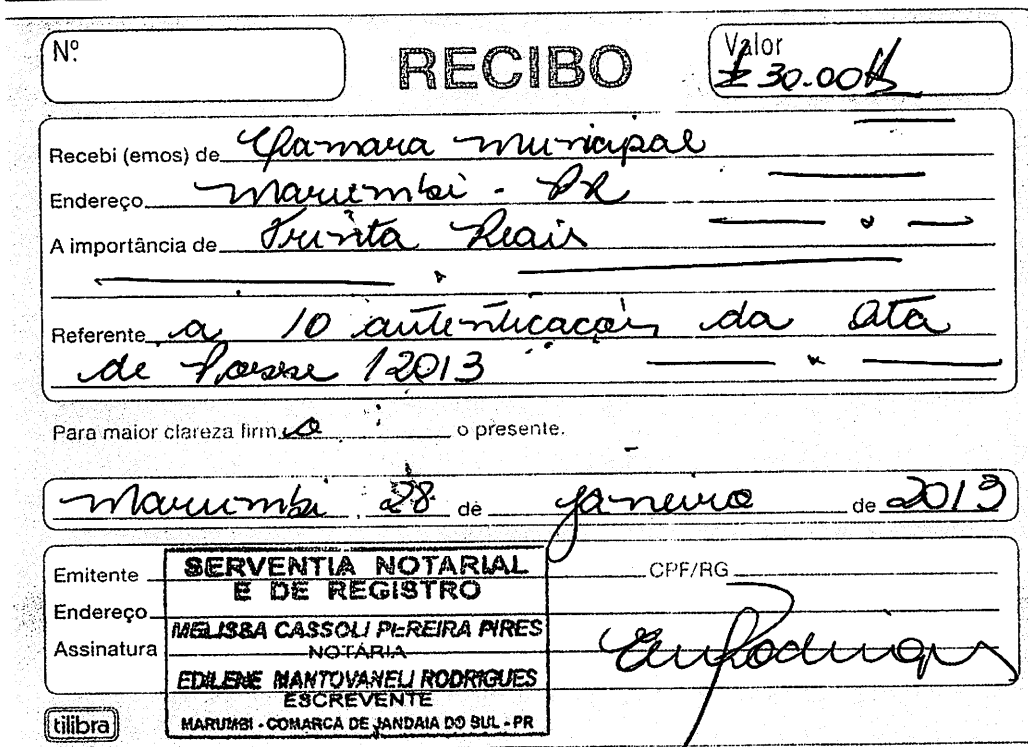 Nº
RECIBO
Valor
# 30.00 #
Recebi (emos) de Câmara Municipal
Endereço Marumbi - PR
A importância de Trinta Reais
Referente a 10 autenticações da Ata
de Posse /2013
Para maior clareza firm o o presente.
Marumbi, 28 de janeiro de 2013
Emitente CPF/RG
Endereço
Assinatura
SERVENTIA NOTARIAL
E DE REGISTRO
MELISSA CASSOLI PEREIRA PIRES
NOTÁRIA
EDILENE MANTOVANELI RODRIGUES
ESCREVENTE
MARUMBI - COMARCA DE JANDAIA DO SUL - PR
tilibra